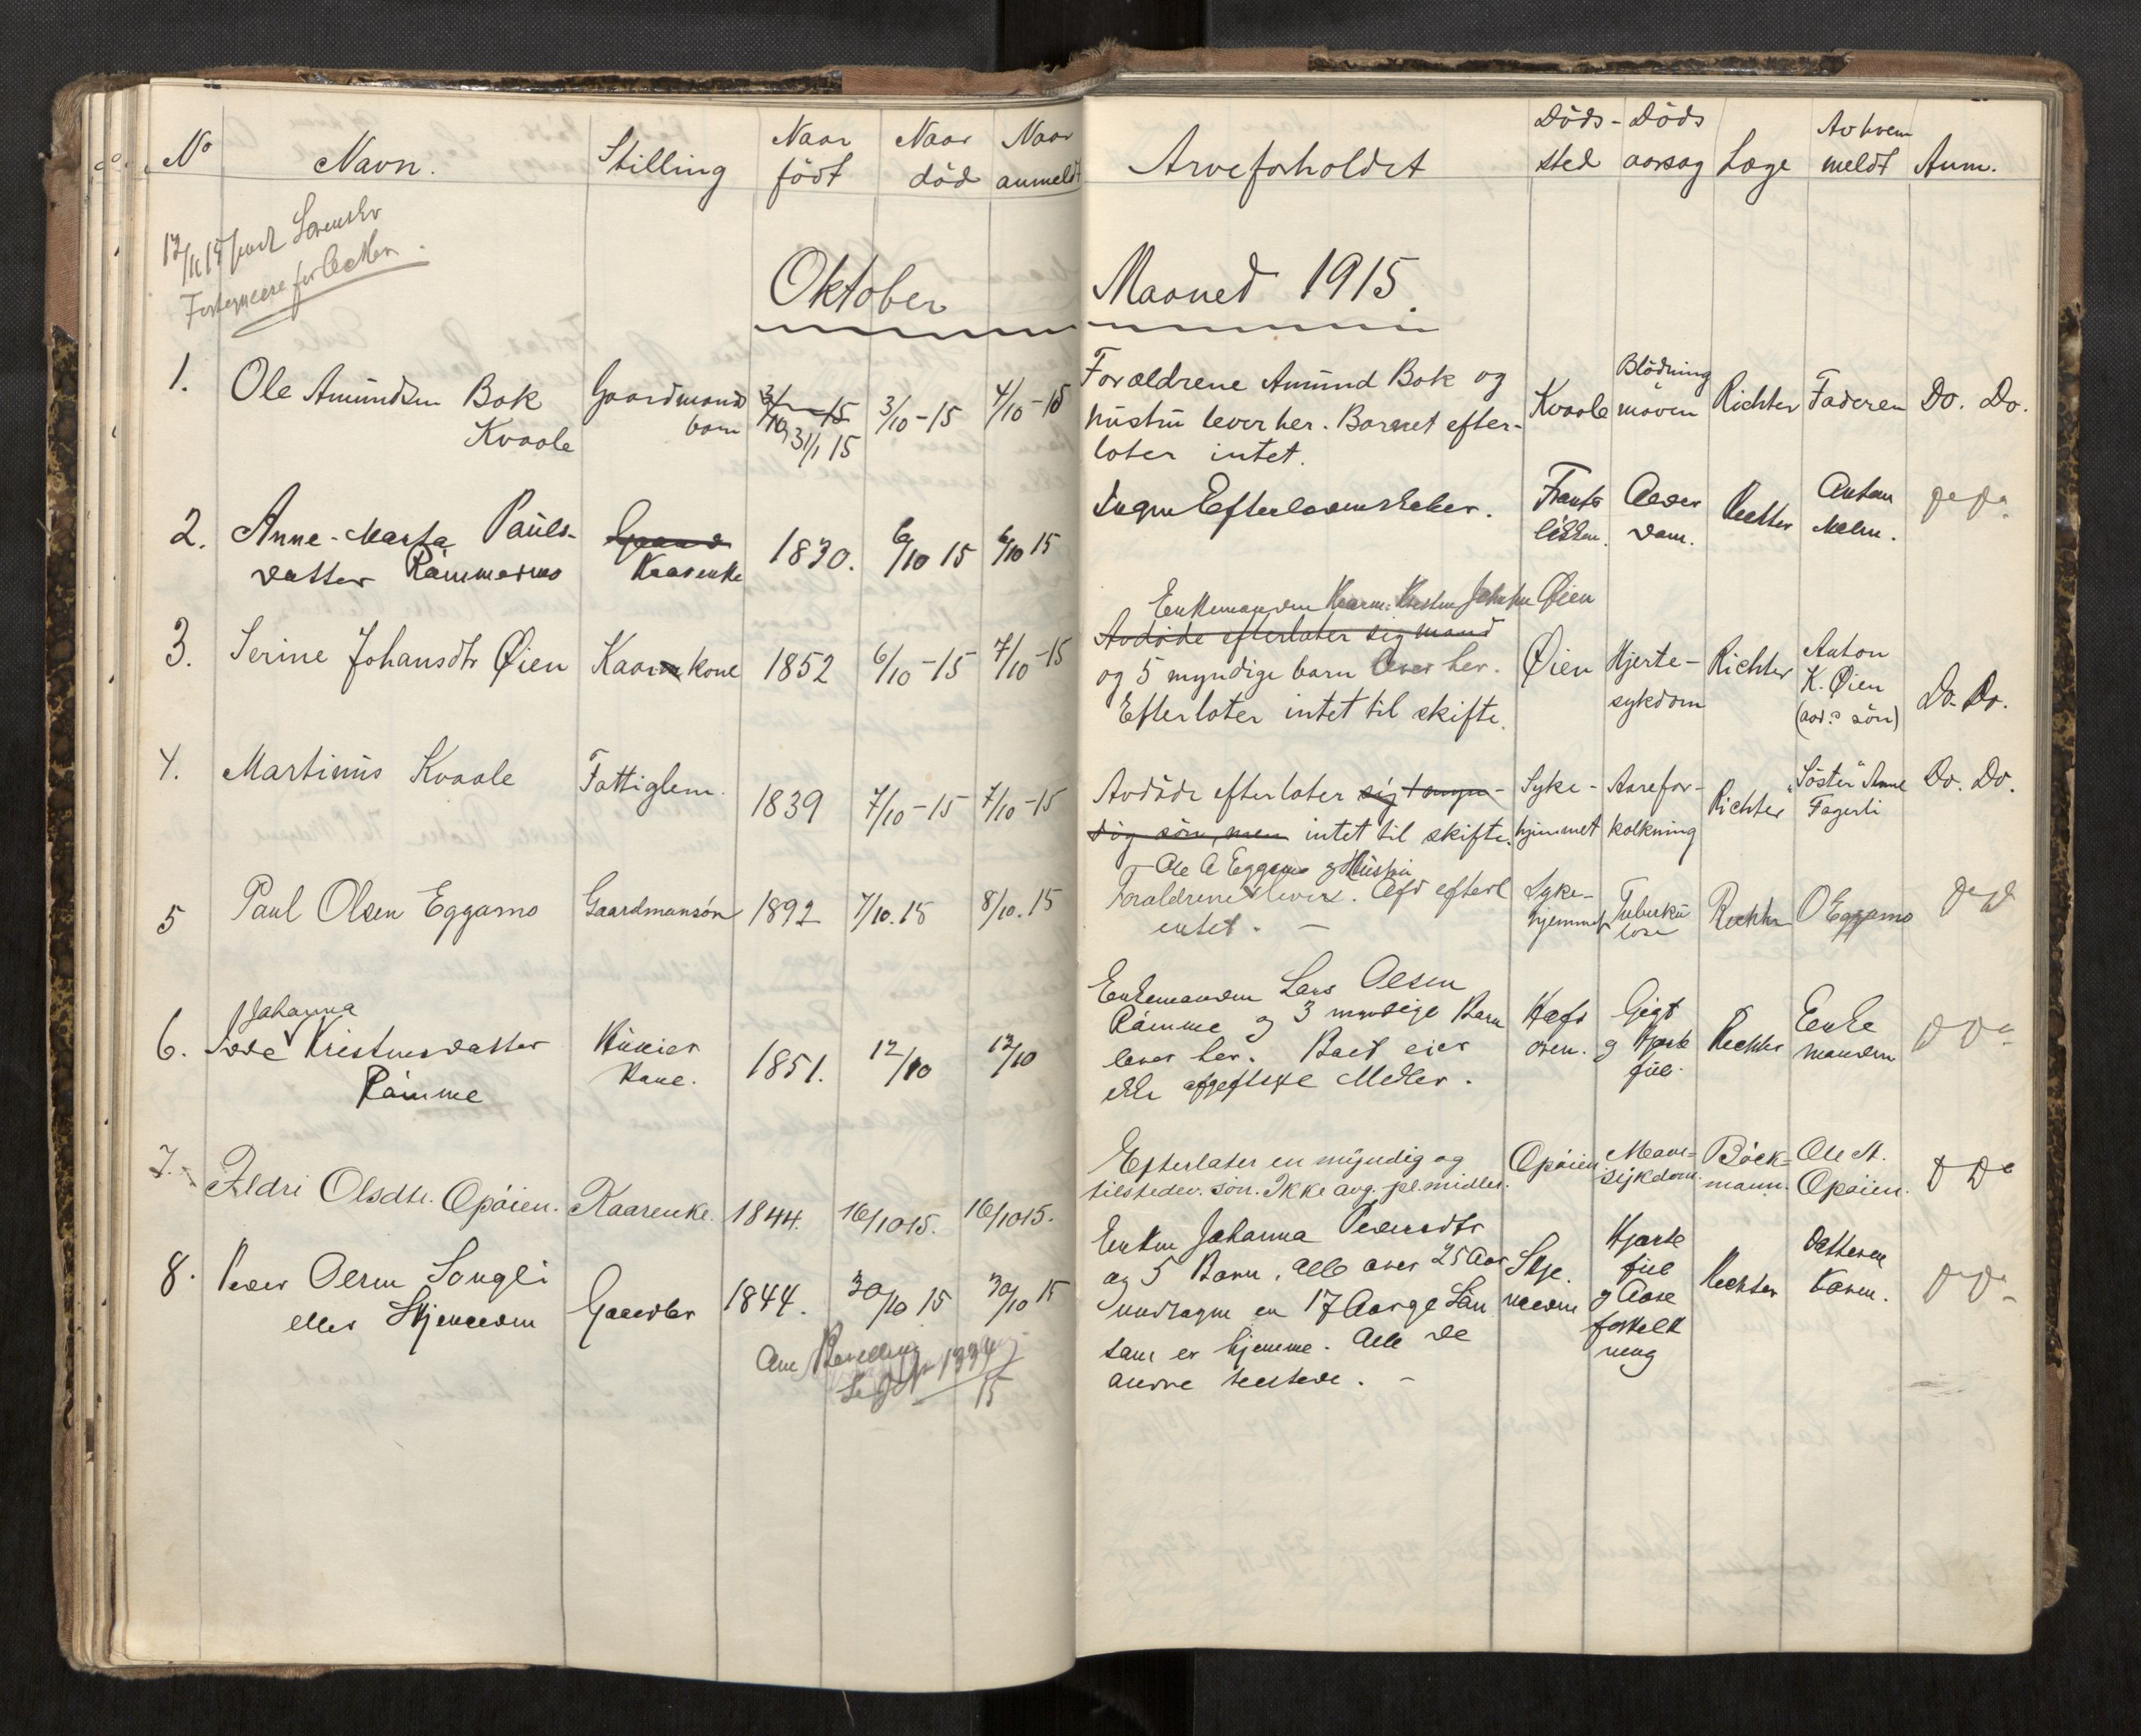 No Navn. Stilling Naar födt Naar död Naar anmeldt Arveforholdet Döds-sted Döds aarsag Læge Av hvem meldt Anm.
Oktober Maaned 1915.
1. Ole Amundsen Bak
Kvaale
Gaardmands
barn
31/1 15
3/10-15
4/10-15
Foraldrene Amund Bak og
hustru lever her. Barnet efter-
later intet.
Kvaale
Blödning
maven
Richter
Faderen
Do. Do.
2. Anne-Marta Pauls-
datter Rämmesmo
Kaarenke
1830.
6/10 15
6/10 15
Ingen Efterladenskaber.
Alder
dom.
Richter
Anton
Melm.
Do Do
3. Serine Johansdtr Øien
Kaarkone
1852
6/10-15
7/10-15
Enkemanden Kaarm. Øien
Avdöde efterlater sig mand
og 5 myndige barn lever her.
Efterlater intet til skifte.
Øien
Hjerte-
sykdom
Richter
Anton
K. Øien
(avd.s sön)
Do. Do.
4. Martinus Kvaale
Fattiglem.
1839
7/10-15
7/10-15
Avdöde efterlater sig
dig sön, men intet til skifte.
Syke-
hjemmet
Aarefor-
kalkning
Richter
Söster Anne
Fagerli
Do. Do.
5 Paul Olsen Eggamo
Gaardmansön
1892
7/10.15
8/10.15
Ole A Eggamo og Hustru
Foraldrene lever. Afd efterl
intet. -
Syke-
hjemmet
Tuberku
lose
Richter
O Eggamo
Do Do
6. Johanna
Kristensdatter
Rämme
kone.
1851.
12/10
12/10
Enkemanden Lars Olsen
Rämme og 3 myndige Barn
lever her. Boet eier
ikke afgiftspl Midler.
Gigt
og Hjerte
feil.
Richter
Enke
manden
Do Do
7. Ildri Olsdtr. Opöien.
Kaarenke.
1844.
16/10 15.
16/10 15.
Efterlater en myndig og
tilstedev. sön. Ikke avg. pl. midler.
Opöien
Mave-
sykdom.
Böck-
mann.
Ole M.
Opöien.
Do Do
8. Peder Olsen Songli
eller
Gaardbr
1844.
30/10 15
30/10 15
Enken Johanna Pedersdtr
og 5 Barn, alle over 25 Aar
undtagen en 17 Aarge Sön
som er hjemme. Alle de
andre tilstede. -
Hjerte
feil
og Aare
forkalk
ning
Richter
Datteren
Karen.
Do Do